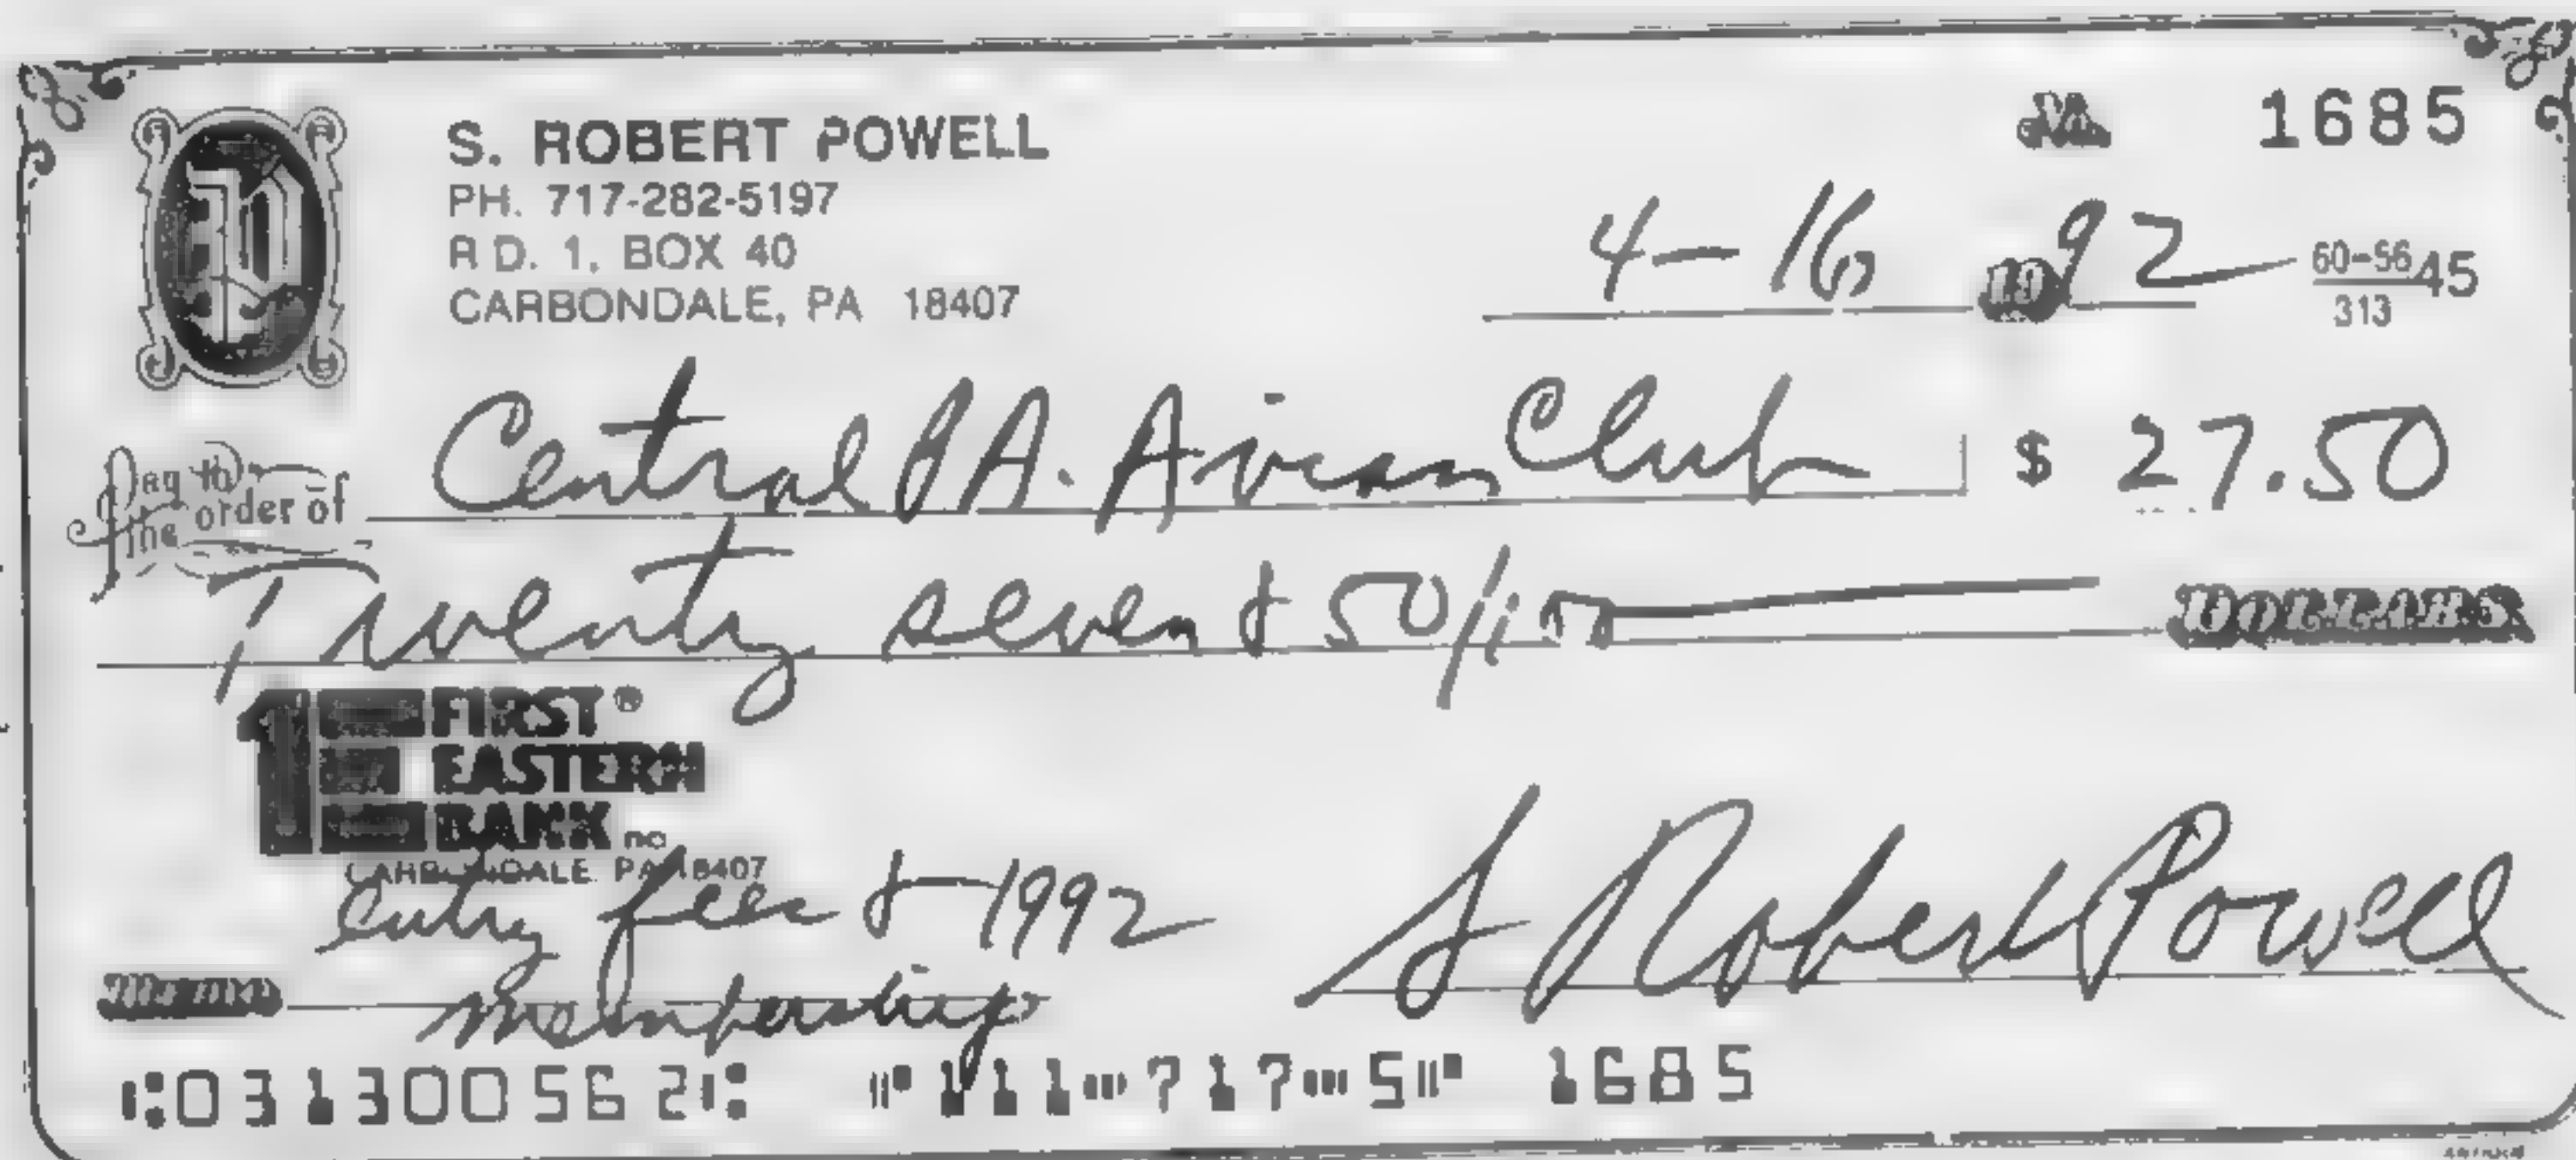 S. ROBERT POWELL
No. 1685
PH. 717-282-5197
R D. 1, BOX 40
CARBONDALE, PA 18407
4-16, 1992
60-5645
313
Pay to the order of Central PA. Avian Club $ 27.50
Twenty seven & 50/100 DOLLARS
1E FIRST®
EASTERN
BANK na
CARBONDALE PA 18407
entry fees & 1992
Memo membership
S Robert Powell
⑆031300562⑆ ⑈111⑉717⑉5⑈ 1685